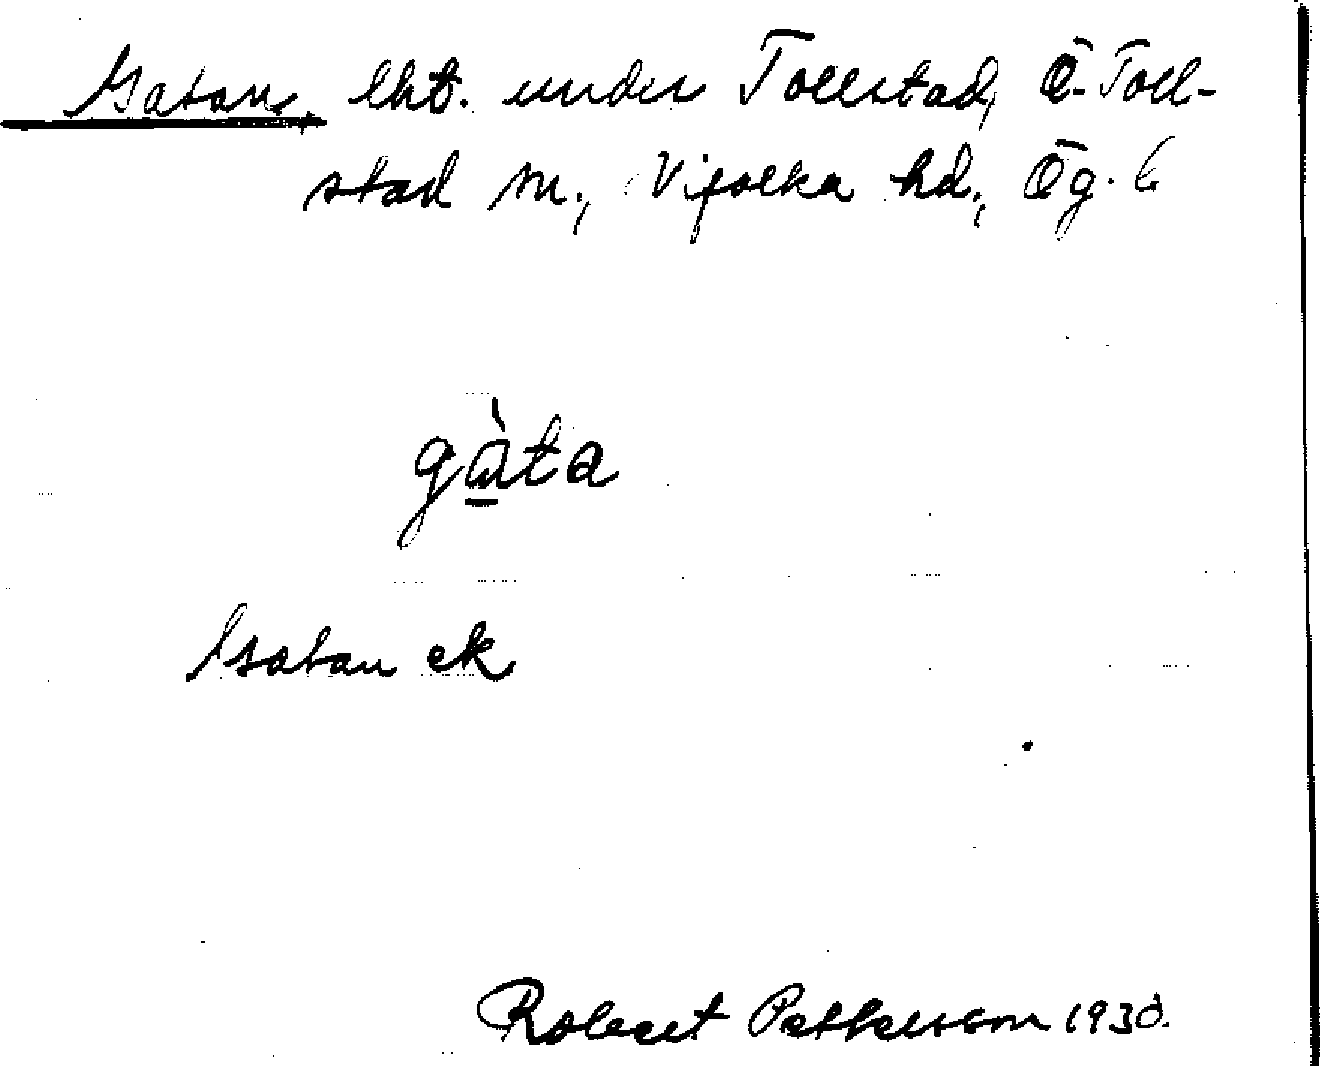 Gatan, lht. under Tollstad, Ö. Toll-
stad sn., Vifolka hd., Ög. l
gàta
Gatan ek
Robert Pettersson 1930.